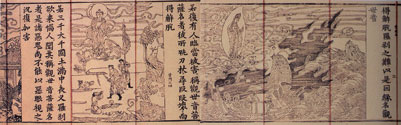 得解脫羅刹之難以是因緣名觀
世音
若復有人臨當被害稱觀世音菩
薩名者彼所執刀杖尋段段壞而
得解脫
若三千大千國土滿中夜叉羅刹
欲來惱人聞其稱觀世音菩薩名
者是諸惡鬼尚不能以惡眼視之
況復加害